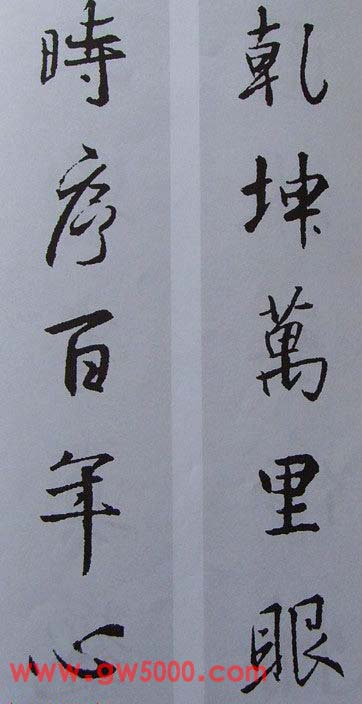 乾坤萬里眼
時序百年心
www.gw5000.com